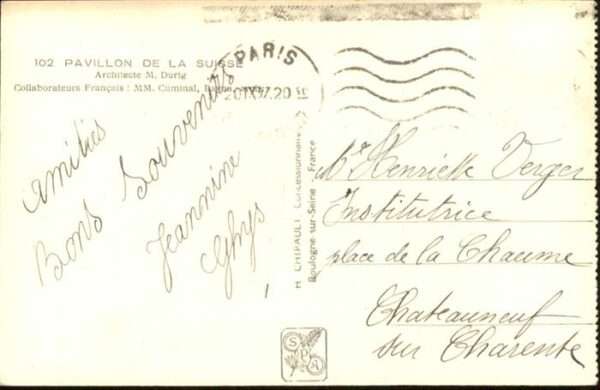 102 PAVILLON DE LA SUISSE
Architecte M. Durig
Collaborateurs Français : MM. Cuminal,
PARIS
20IX37.20
amitiés
Bons Souvenirs
Jeannine
Ghys
H. CHIPAULT, Concessionnaire
Boulogne-sur-Seine - France
Henriette Verger
Institutrice
place de la Chaume
Chateauneuf
sur Charente
S P A